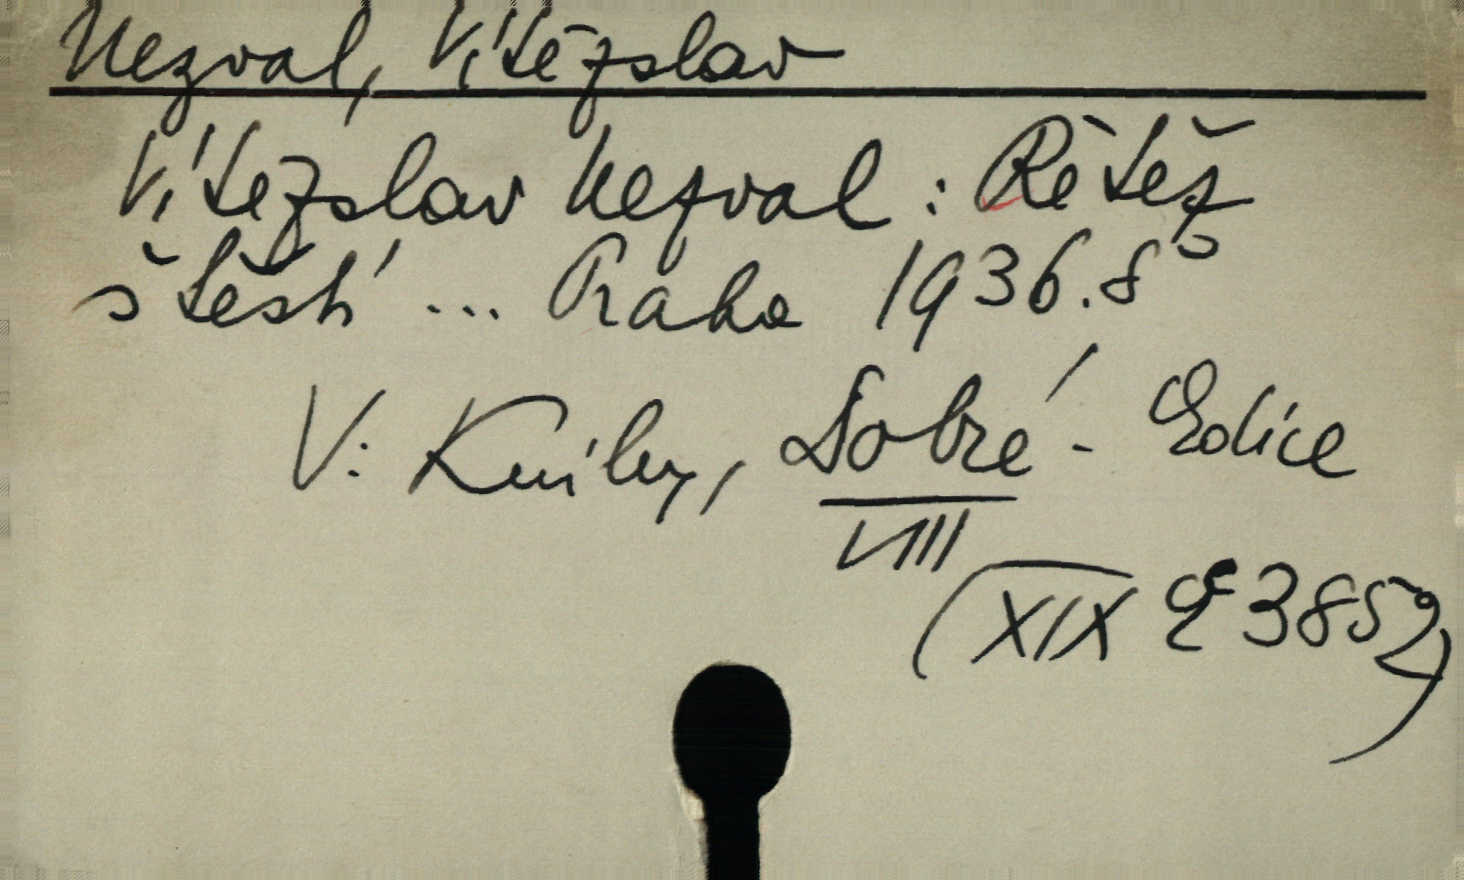 Nezval, Vítězslav
Vítězslav Nezval: Řetěz
štěstí ... Praha 1936. 8°
V: Knihy, Dobré - Edice
VIII
(XIX E 3852)